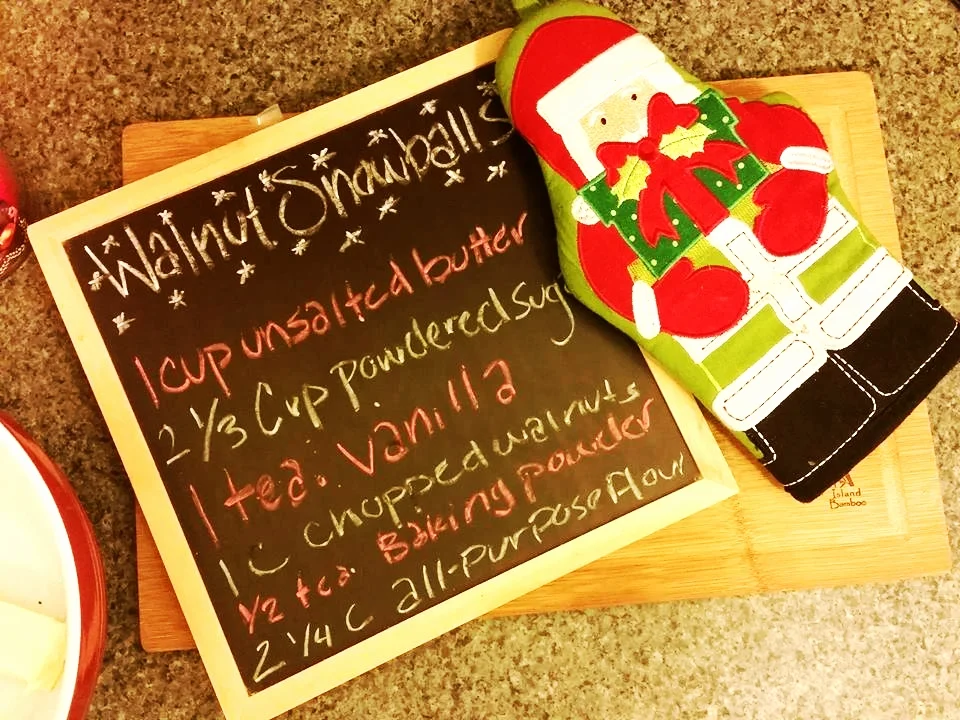 Walnut Snowballs
1 cup unsalted butter
2 1/3 Cup powdered sug
1 tea. vanilla
1 C chopped walnuts
1/2 tea. Baking powder
2 1/4 C all-purpose flour
Island
Bamboo